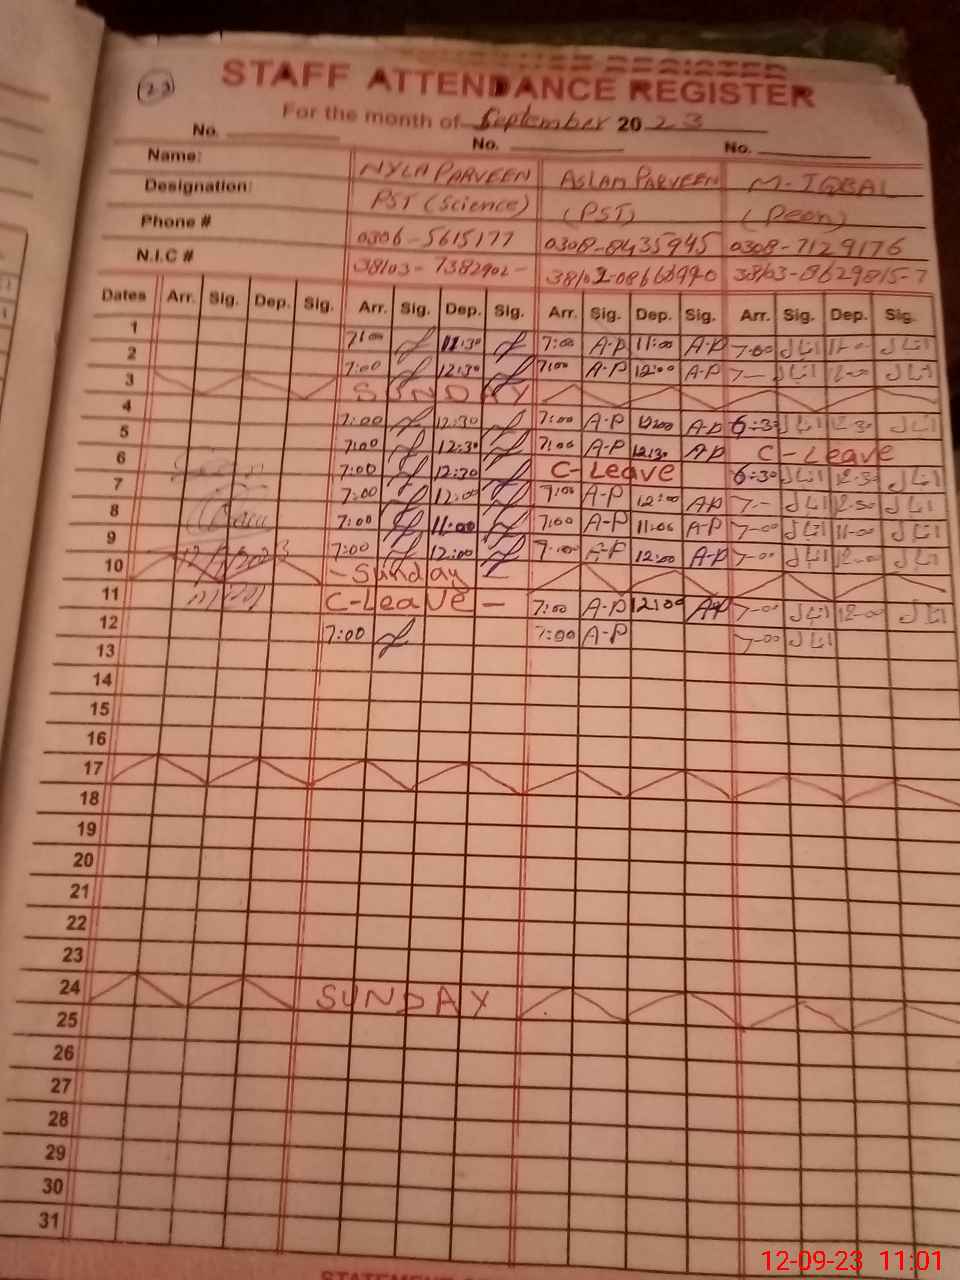 23
STAFF ATTENDANCE REGISTER
For the month of September 2023
No. No. No.
Name: NYLA PARVEEN ASLAM PARVEEN M. IQBAL
Designation: PST (Science) (PST) (Peon)
Phone # 0306-5615177 0308-8435945 0308-7129176
N.I.C # 38103-7382902- 38102-0866 38103-8629815-7
Dates Arr. Sig. Dep. Sig. Arr. Sig. Dep. Sig. Arr. Sig. Dep. Sig. Arr. Sig. Dep. Sig.
1 7:00 11:30 7:00 A-P 11:00 A-P 7-00 11-00
2 7:00 12:30 7:00 A-P 12:00 A-P 7-
3 SUNDAY
4 7:00 12:30 7:00 A-P 12:00 A-P 6:30 12-30
5 7:00 12:30 7:00 A-P 12:30 A-P C-Leave
6 7:00 12:30 C-Leave 6:30 12-30
7 7:00 12:00 7:00 A-P 12:00 A-P 7-
8 7:00 11:00 7:00 A-P 11:00 A-P 7-00 11-00
9 7:00 12:00 7:00 A-P 12:00 A-P 7-00 12-00
10 -Sunday-
11 C-Leave - 7:00 A-P 12:00 A-P 7-00 12-00
12 7:00 7:00 A-P 7-00
13
14
15
16
17
18
19
20
21
22
23
24 SUNDAY
25
26
27
28
29
30
31
12-09-23 11:01